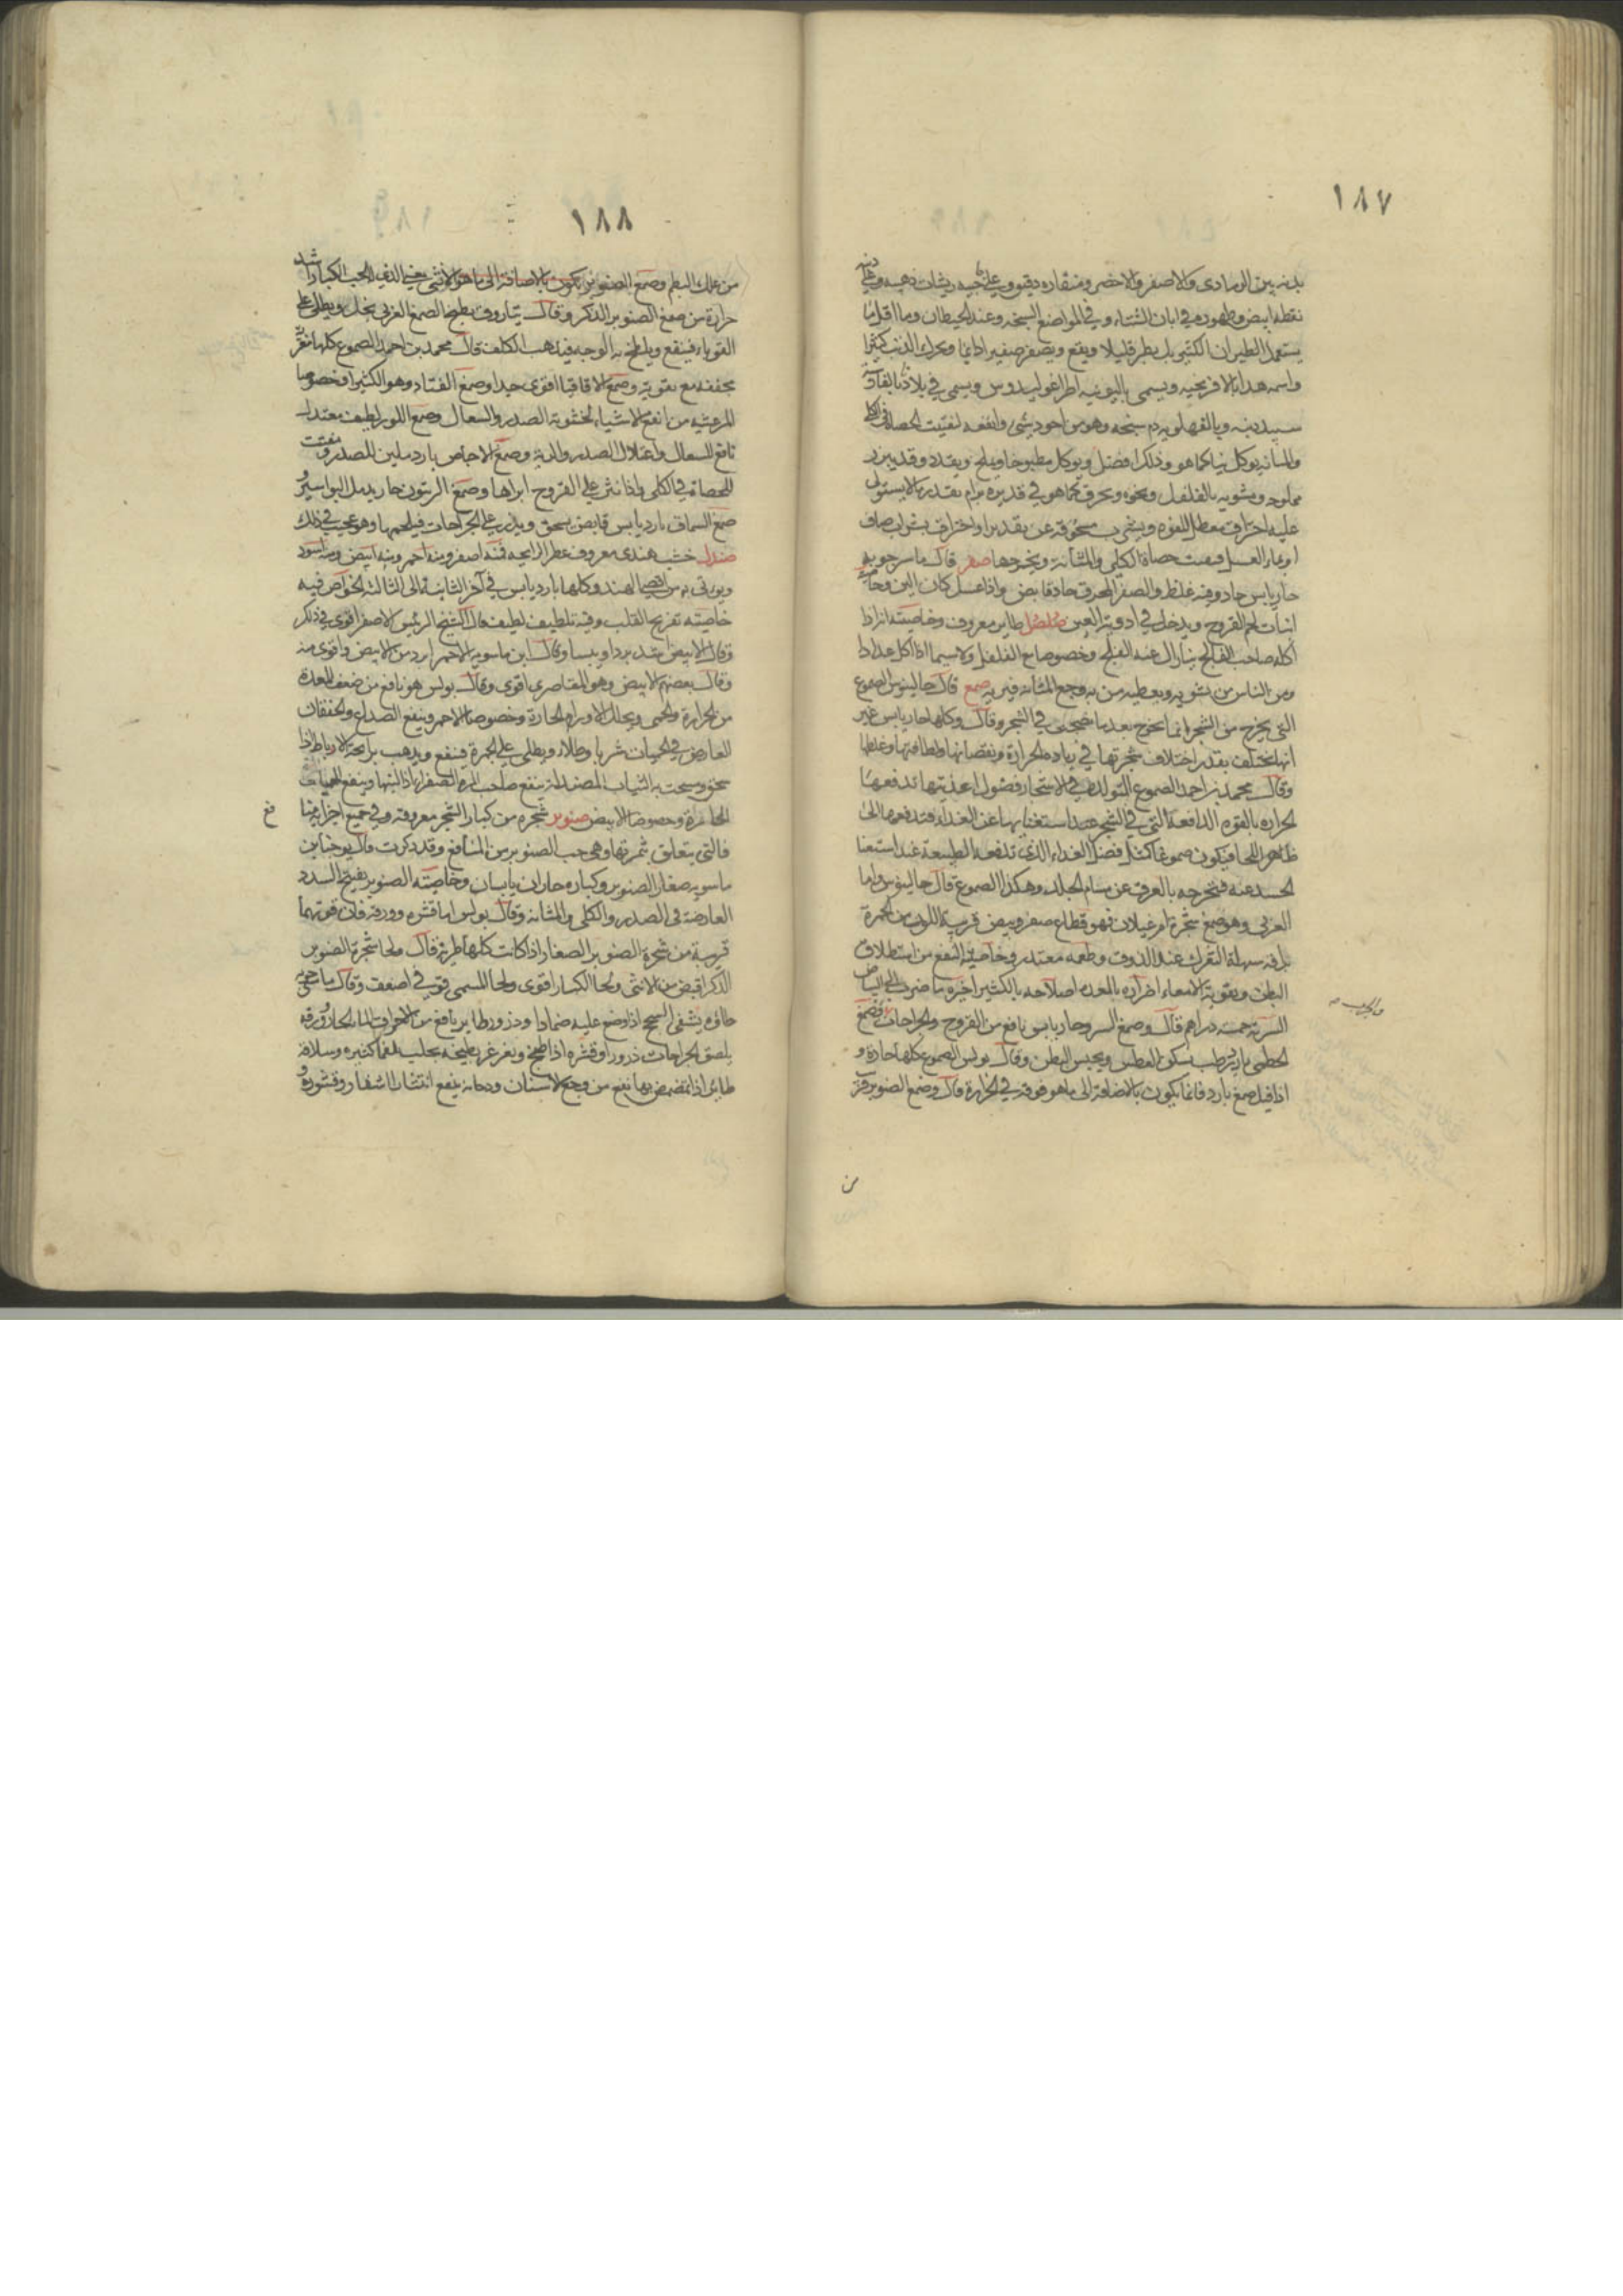 ١٨٧
بدنه بين الرمادى والاصفر والاخضر ومنقاره دقيق وعلى جنبيه ريشات ذهبية وعلى ذنبه
نقط بيض وظهوره فى ابان الشتاء وفى المواضع السبخة وعند الحيطان وما اقل ما
يستعمل الطيران الكثير بل يطير قليلا ويقع ويصفر صفيرا دايما ويحرك الذنب كثيرا
واسمه هذا بالافرنجيه ويسمى باليونيه اطراغوليدوس ويسمى فى بلادنا بالفارسية
وبالفهلويه دم سنجه وهو من اجود شئ وانفعه لتفتيت الحصاة فى الكلى
والمثانه يوكل نيا كما هو وذلك افضل ويوكل مطبوخا ويملح ويقدد وقد يبزر
مملوحه ومشويه بالفلفل ونحوه ويحرق كما هو فى قدر برام بقدر ما لا يستولى
عليه احتراق معطل للقوه ويسقى مسحوقه عن تقدير او احتراق بشراب صاف
او بماء العسل فيفتت حصاة الكلى والمثانة ويخرجها صفر قال ماسرجويه
حار يابس حاد وفيه غلظ والصفر المحرق حاد قابض واذا غسل كان الين
انبات لحم القروح ويدخل فى ادوية العين صلصل طاير معروف وخاصيته انه اذا
اكله صاحب الفالج يزال عنه الفالج وخصوصا مع الفلفل ولا سيما اذا اكل عدادا
ومن الناس من يشويه ويعطيه من به وجع المثانه فيبريه صمغ قال جالينوس الصموغ
التى يخرج من الشجر انما تخرج بعد ما نضجت فى الشجر وقال وكلها حار يابس غير
انها تختلف بقدر اختلاف شجرتها فى زياده الحرارة ونقصانها ولطافتها وغلظها
وقال محمد بن احمد الصموغ التولد هى فى الاشجار فضول اغذيتها تدفعها
الحراره بالقوه الدافعة التى فى الشجر عند استغنايها عن الغذاء فتدفعها الى
ظاهر اللحا فيكون صموغا كمثل فضل الغذاء الذى تدفعه الطبيعة عند استغنا
الجسد عنه فتخرجه بالعرق عن مسام الجلد وهكذا الصموغ قال جالينوس واما
العربى وهو صمغ شجرة ام غيلان فهو قطاع صفر وبيض قريبة اللون من الحمرة
براقه سهلة التفرك عند الذوق وطعمه معتدل وخاصيته النفع من استطلاق
البطن وتقوية الامعاء اضراره بالمعده اصلاحه بالكثيرا
السربة خمسه دراهم قال وصمغ السرو حار يابس نافع من القروح والجراحات وصمغ
الخطمى بارد رطب يسكن العطش ويحبس البطن وقال بولس الصموغ كلها حارة و
اذا قيل صمغ بارد فانما يكون بالاضافة الى ما هو فوقه فى الحرارة قال وصمغ الصنوبر
من
١٨٨
من علك البطم وصمغ الصنوبر يكون بالاضافة الى ما هو لانثى يعنى الذى للحب الكبار اشد
حرارة من صمغ الصنوبر الذكر وقال يتاروق يطبخ الصمغ العربى بخل ويطلى على
القوباء فينفع ويلطخ به الوجه فيذهب الكلف قال محمد بن احمد الصموغ كلها مغرية
مجففه مع تقويه وصمغ الاقاقيا اقوى جدا وصمغ القتاد وهو الكثيرا وخصوصا
المرعشيه من انفع الاشياء لخشونة الصدر والسعال وصمغ اللوز لطيف معتدل
نافع للسعال واعتلال الصدر والرية وصمغ الاجاص بارد ملين للصدر مفتت
للحصاة فى الكلى واذا نثر على القروح ابراها وصمغ الزيتون حار يدمل البواسير
صمغ السماق بارد يابس قابض يسحق ويذر على الجراحات فيلحمها وهو عجيب فى ذلك
صندل خشب هندى معروف عطر الرايحه فمنه اصفر ومنه احمر ومنه ابيض ومنه اسود
ويوتى به من اقصى الهند وكلها بارد يابس فى آخر الثانية الى الثالثة
خاصيته تفريح القلب وفيه تلطيف لطيف قال الشيخ الرئيس الاصفر اقوى فى ذلك
وقال الابيض اشد بردا ويبسا وقال ابن ماسويه الاحمر ابرد من الابيض واقوى منه
وقال بعضهم الابيض وهو المقاصرى اقوى وقال بولس هو نافع من ضعف المعدة
من الحرارة والحمى ويحلل الاورام الحارة وخصوصا الاحمر وينفع الصداع والخفقان
العارض فى الحميات شربا وطلاء ويطلى على الحمرة فينفع ويذهب برايحة الارباط اذا
سحق ومسحت به الثياب المصندلة ينفع صاحب المرة الصفراء اذا لبسها وينفع الحميات
الحارة وخصوصا الابيض صنوبر شجره من كبار الشجر معروفه وفى جميع اجزايه منا
فالتى يتعلق بثمرتها وهى حب الصنوبر من المنافع وقد ذكرت قال يوحنا بن
ماسويه صغار الصنوبر وكباره حاران يابسان وخاصيته الصنوبر تفتيح السدد
العارضة فى الصدر والكلى والمثانه وقال بولس اما قشره وورقه فان قوتهما
قريبة من شجرة الصنوبر الصغار اذا كانت كلها طرية قال ولحا شجرة الصنوبر
الذكر اقبض من الانثى ولحا الكبار اقوى ولحا المسمى قوفى اضعف وقال ماسرجويه
لحاؤه يشفى السحج اذا وضع عليه ضمادا وذرورا نافع من احراق الماء الحار وورقه
يلصق الجراحات ذرورا وقشره اذا طبخ وتغرغر بطبيخه يحلب بلغما كثيره وسلاقة
اذا تمضمض بها نفع من وجع الاسنان ودخانه ينفع انتثار الاشفار وقشوره